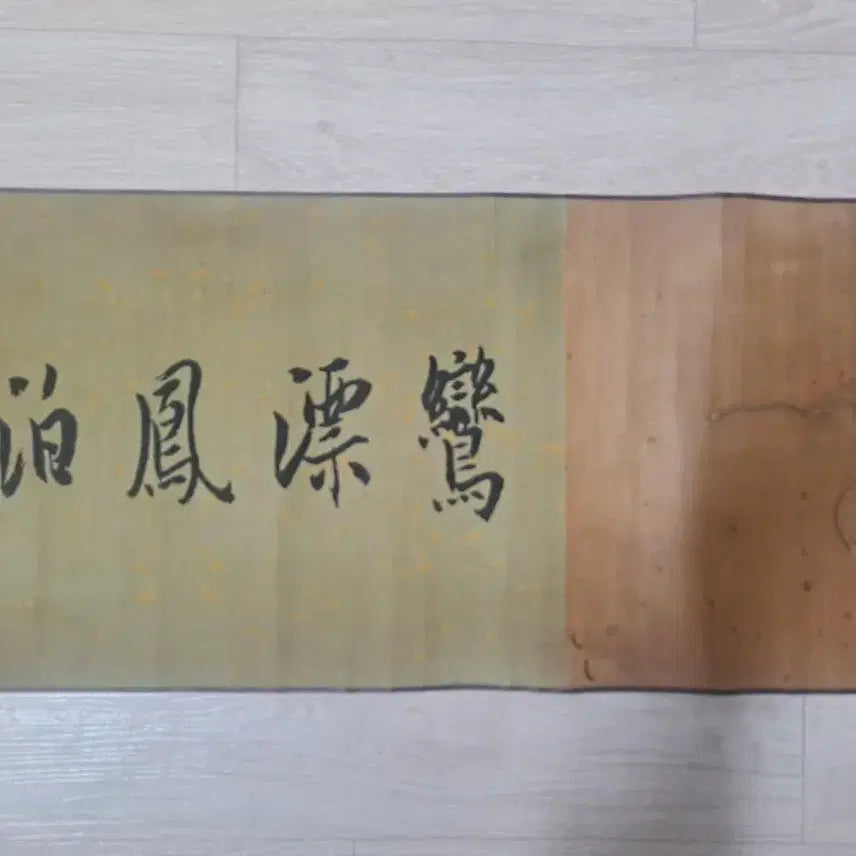 鸞漂鳳泊